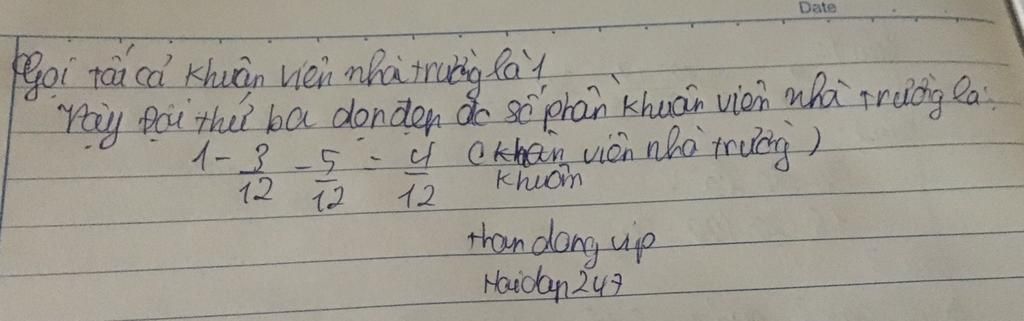 Date
Gọi tất cả khuân viên nhà trường là 1
Vậy đội thứ ba dọn dẹp đc số phần khuân viên nhà trường là:
1 - 3/12 - 5/12 = 4/12 (khuân viên nhà trường)
khuôn
than dang vip
Hoidap247